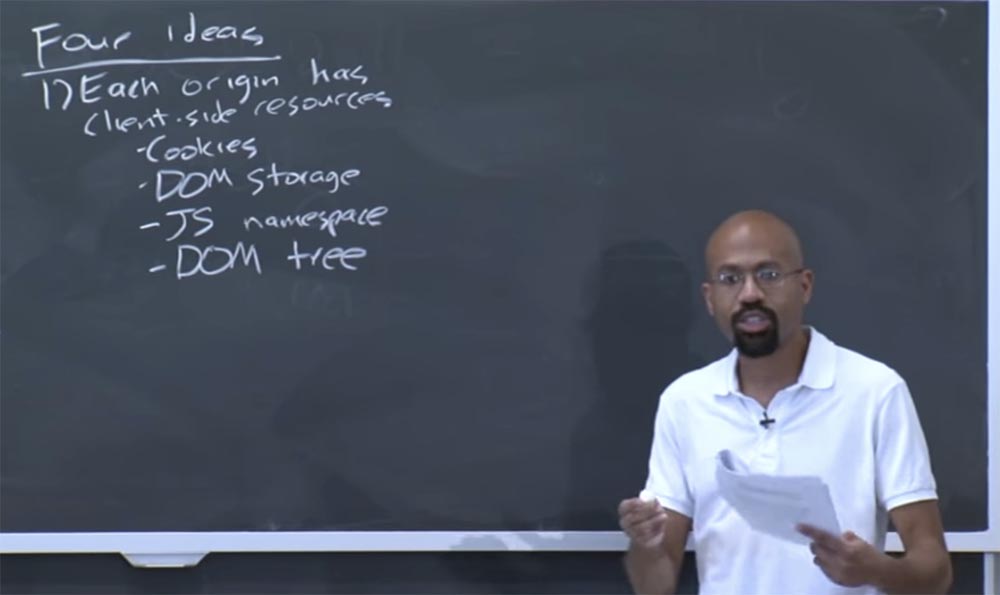 Four ideas
1) Each origin has
client-side resources
-Cookies
-DOM storage
-JS namespace
-DOM tree